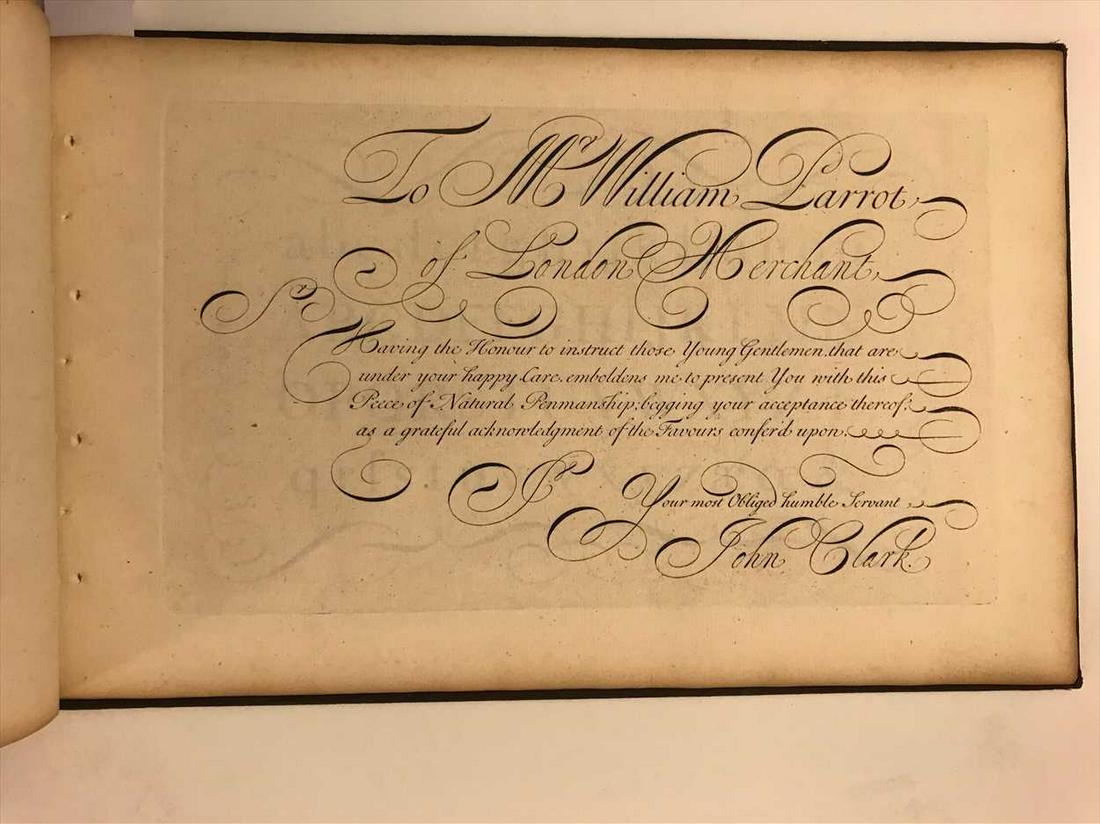 To Mr William Parrot
of London Merchant,
Sr
Having the Honour to instruct those Young Gentlemen, that are
under your happy Care, emboldens me to present You with this
Peece of Natural Penmanship, begging your acceptance thereof,
as a grateful acknowledgment of the Favours confer'd upon
Sr
Your most Obliged humble Servant
John Clark.